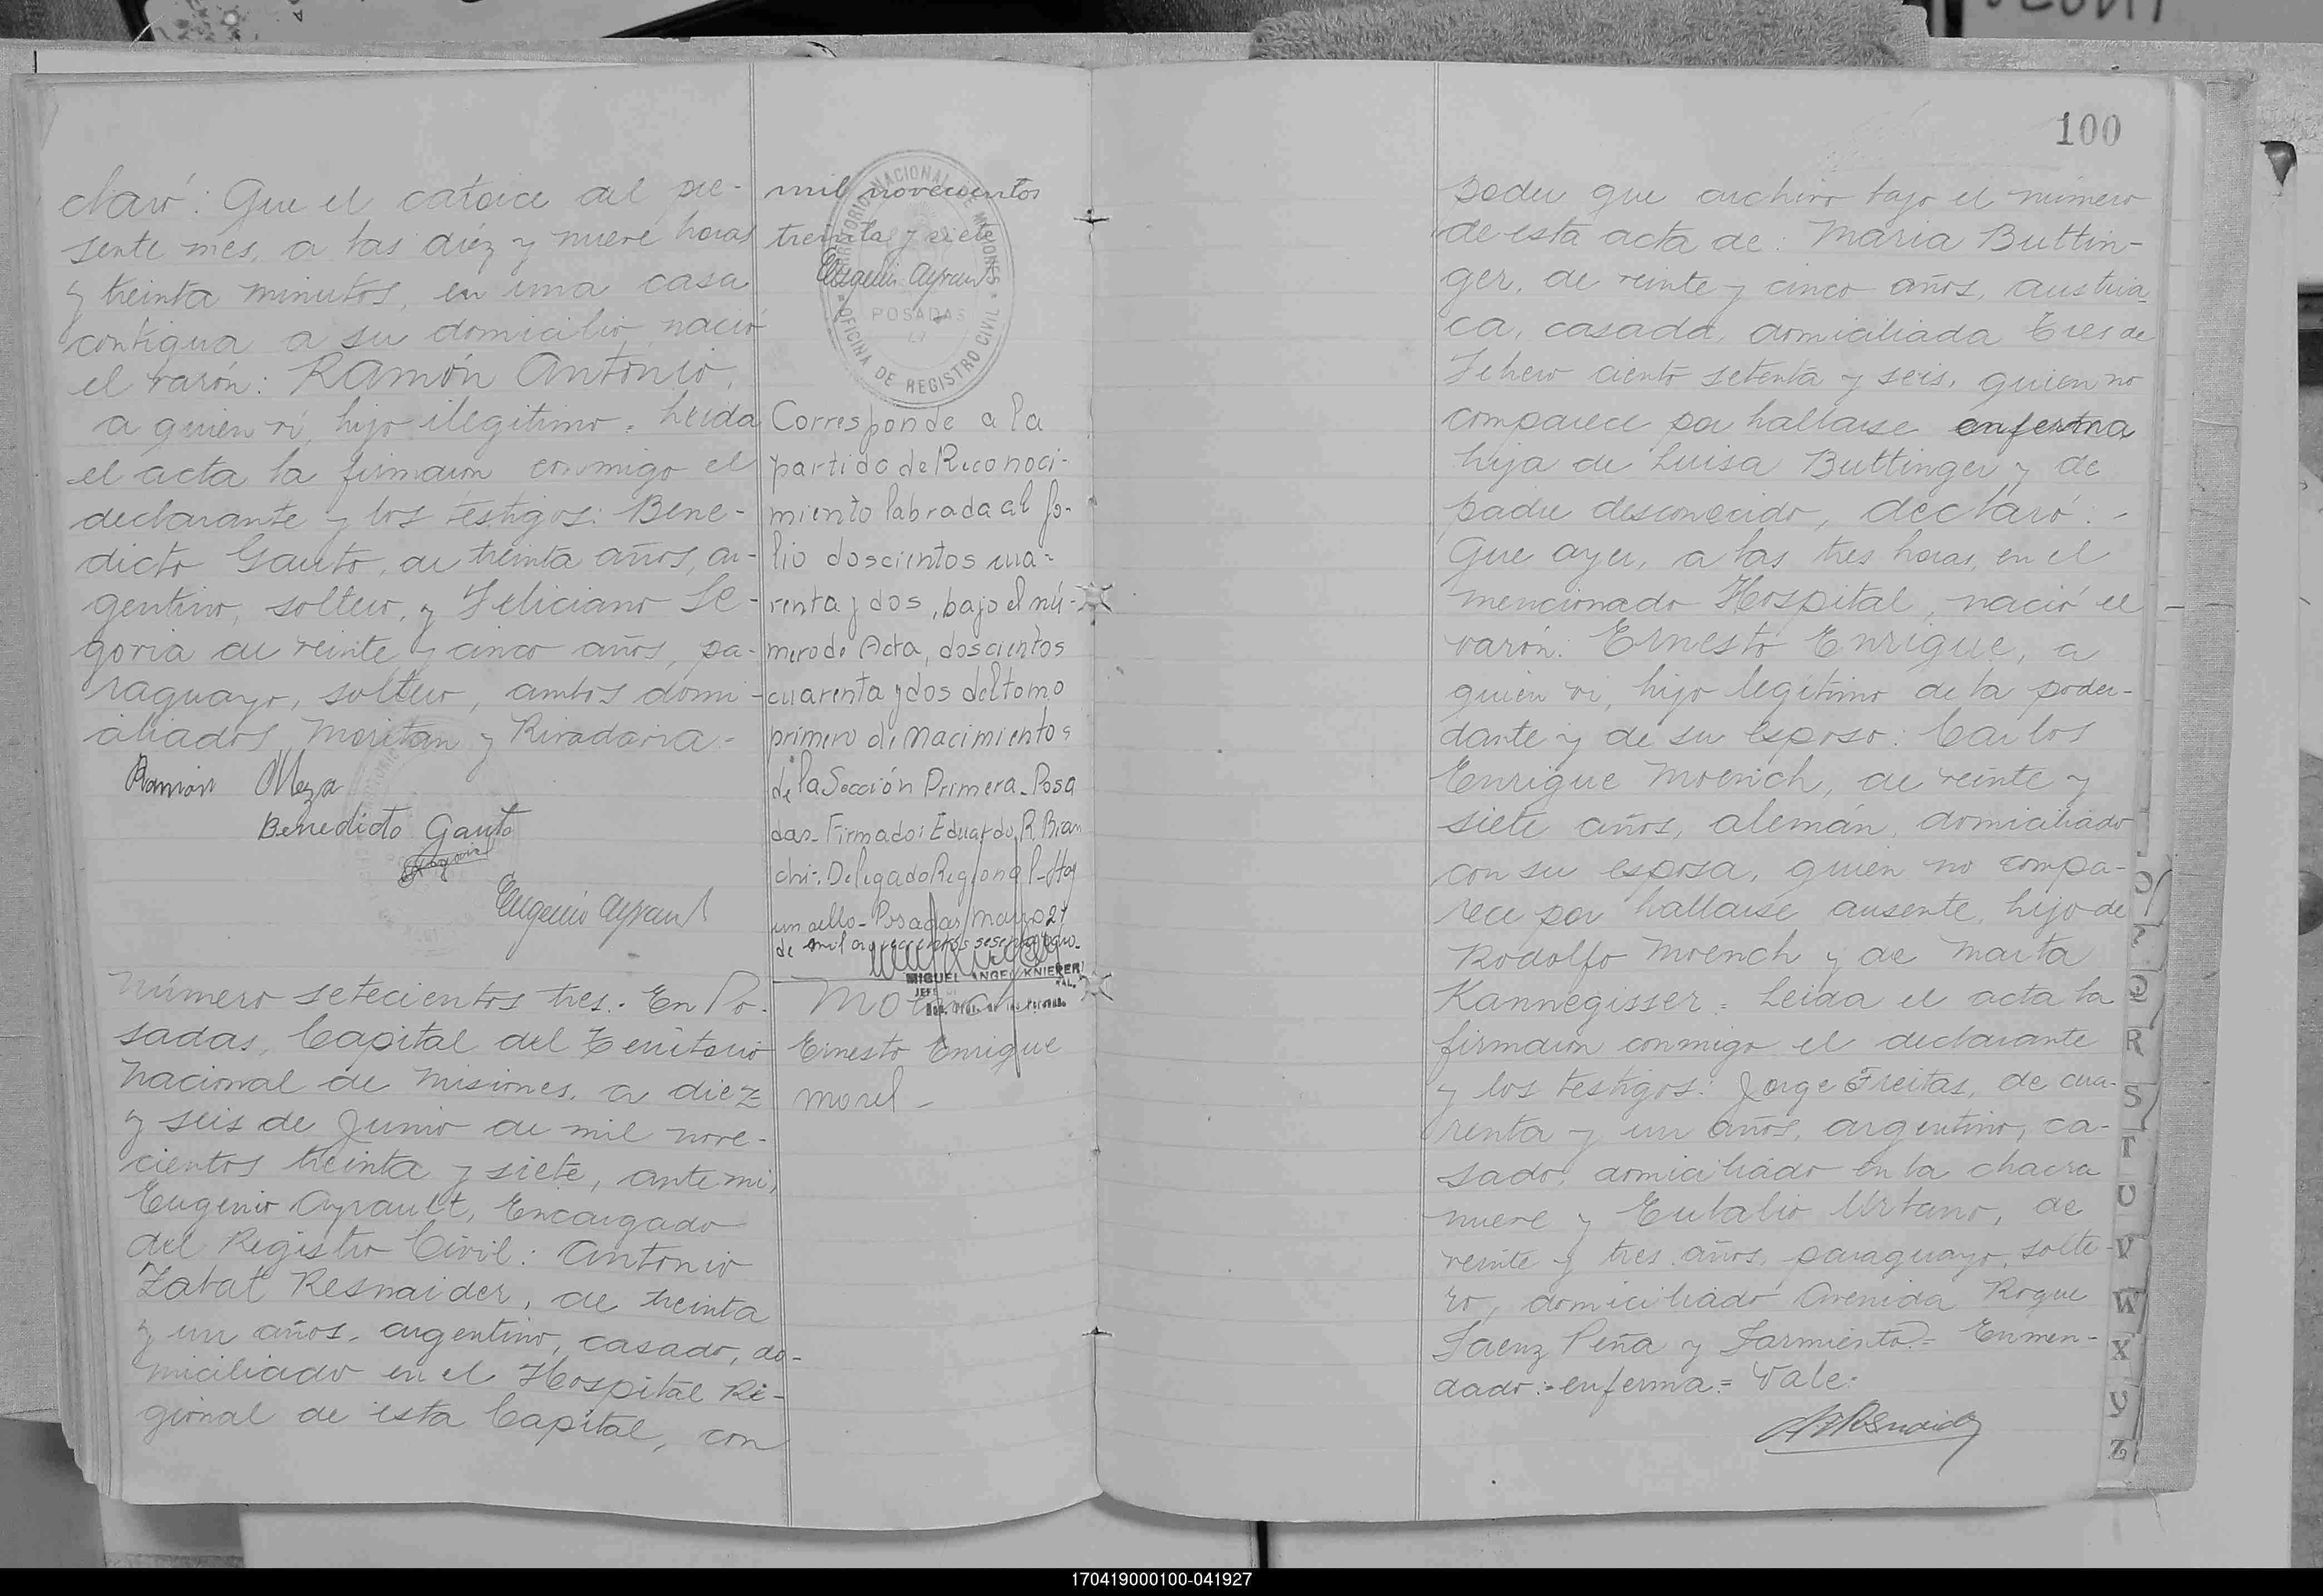 claró: Que el catorce del pre-
sente mes, a las diéz y nueve horas
y treinta minutos, en una casa
contigua a su domicilio, nació
el varón: Ramón Antonio,
a quien ví, hijo ilegítimo. Leida
el acta la firmaron conmigo el
declarante y los testigos: Bene-
dicto Gauto, de treinta años, ar-
gentino, soltero, y Feliciano Se-
govia de veinte y cinco años, pa-
raguayo, soltero, ambos domi-
ciliados Moritan y Rivadavia.-
Ramón Meza
Benedicto Gauto
Segovia
Eugenio Ayrault
Número setecientos tres. En Po-
sadas, Capital del Territorio
Nacional de Misiones, a diez
y seis de Junio de mil nove-
cientos treinta y siete, ante mí,
Eugenio Ayrault, Encargado
del Registro Civil: Antonio
Zabat Resnaider, de treinta
y un años, argentino, casado, do-
miciliado en el Hospital Re-
gional de esta Capital, con
mil novecientos
treinta y siete
Eugenio Ayrault
TERRITORIO NACIONAL DE MISIONES
POSADAS
OFICINA DE REGISTRO CIVIL
Corresponde a la
partida de Reconoci-
miento labrada al fo-
lio doscientos cua-
renta y dos, bajo el nú-
mero de Acta, doscientos
cuarenta y dos del tomo
primero de Nacimientos
de la Sección Primera-Posa
das-Firmado: Eduardo R. Bian
chi-. Delegado Regional-Hay
un sello-Posadas, marzo 27
de mil novecientos sesenta
MIGUEL ANGEL KNIEPER
JEFE
Moench
Ernesto Enrique
morel-
100
poder que archivo bajo el número
de esta acta de: María Buttin-
ger, de veinte y cinco años, austria-
ca, casada, domiciliada Tres de
Febrero ciento setenta y seis, quien no
comparece por hallarse enferma
hija de Luisa Buttinger y de
padre desconocido, declaró:-
Que ayer, a las tres horas, en el
mencionado Hospital, nació el
varón: Ernesto Enrique, a
quien ví, hijo legítimo de la poder-
dante y de su esposo: Carlos
Enrique Moench, de veinte y
siete años, alemán, domiciliado
con su esposa, quien no compa-
rece por hallarse ausente, hijo de
Rodolfo Moench y de Marta
Kannegisser. Leida el acta la
firmaron conmigo el declarante
y los testigos: Jorge Freitas, de cua-
renta y un años, argentino, ca-
sado, domiciliado en la chacra
nueve y Eulalio Urbano, de
veinte y tres años, paraguayo, solte-
ro, domiciliado Avenida Roque
Saenz Peña y Sarmiento.= Enmen-
dado:-enferma= Vale.
AZResnaider
O
Q
R
S
T
U
V
W
X
Y
Z
170419000100-041927